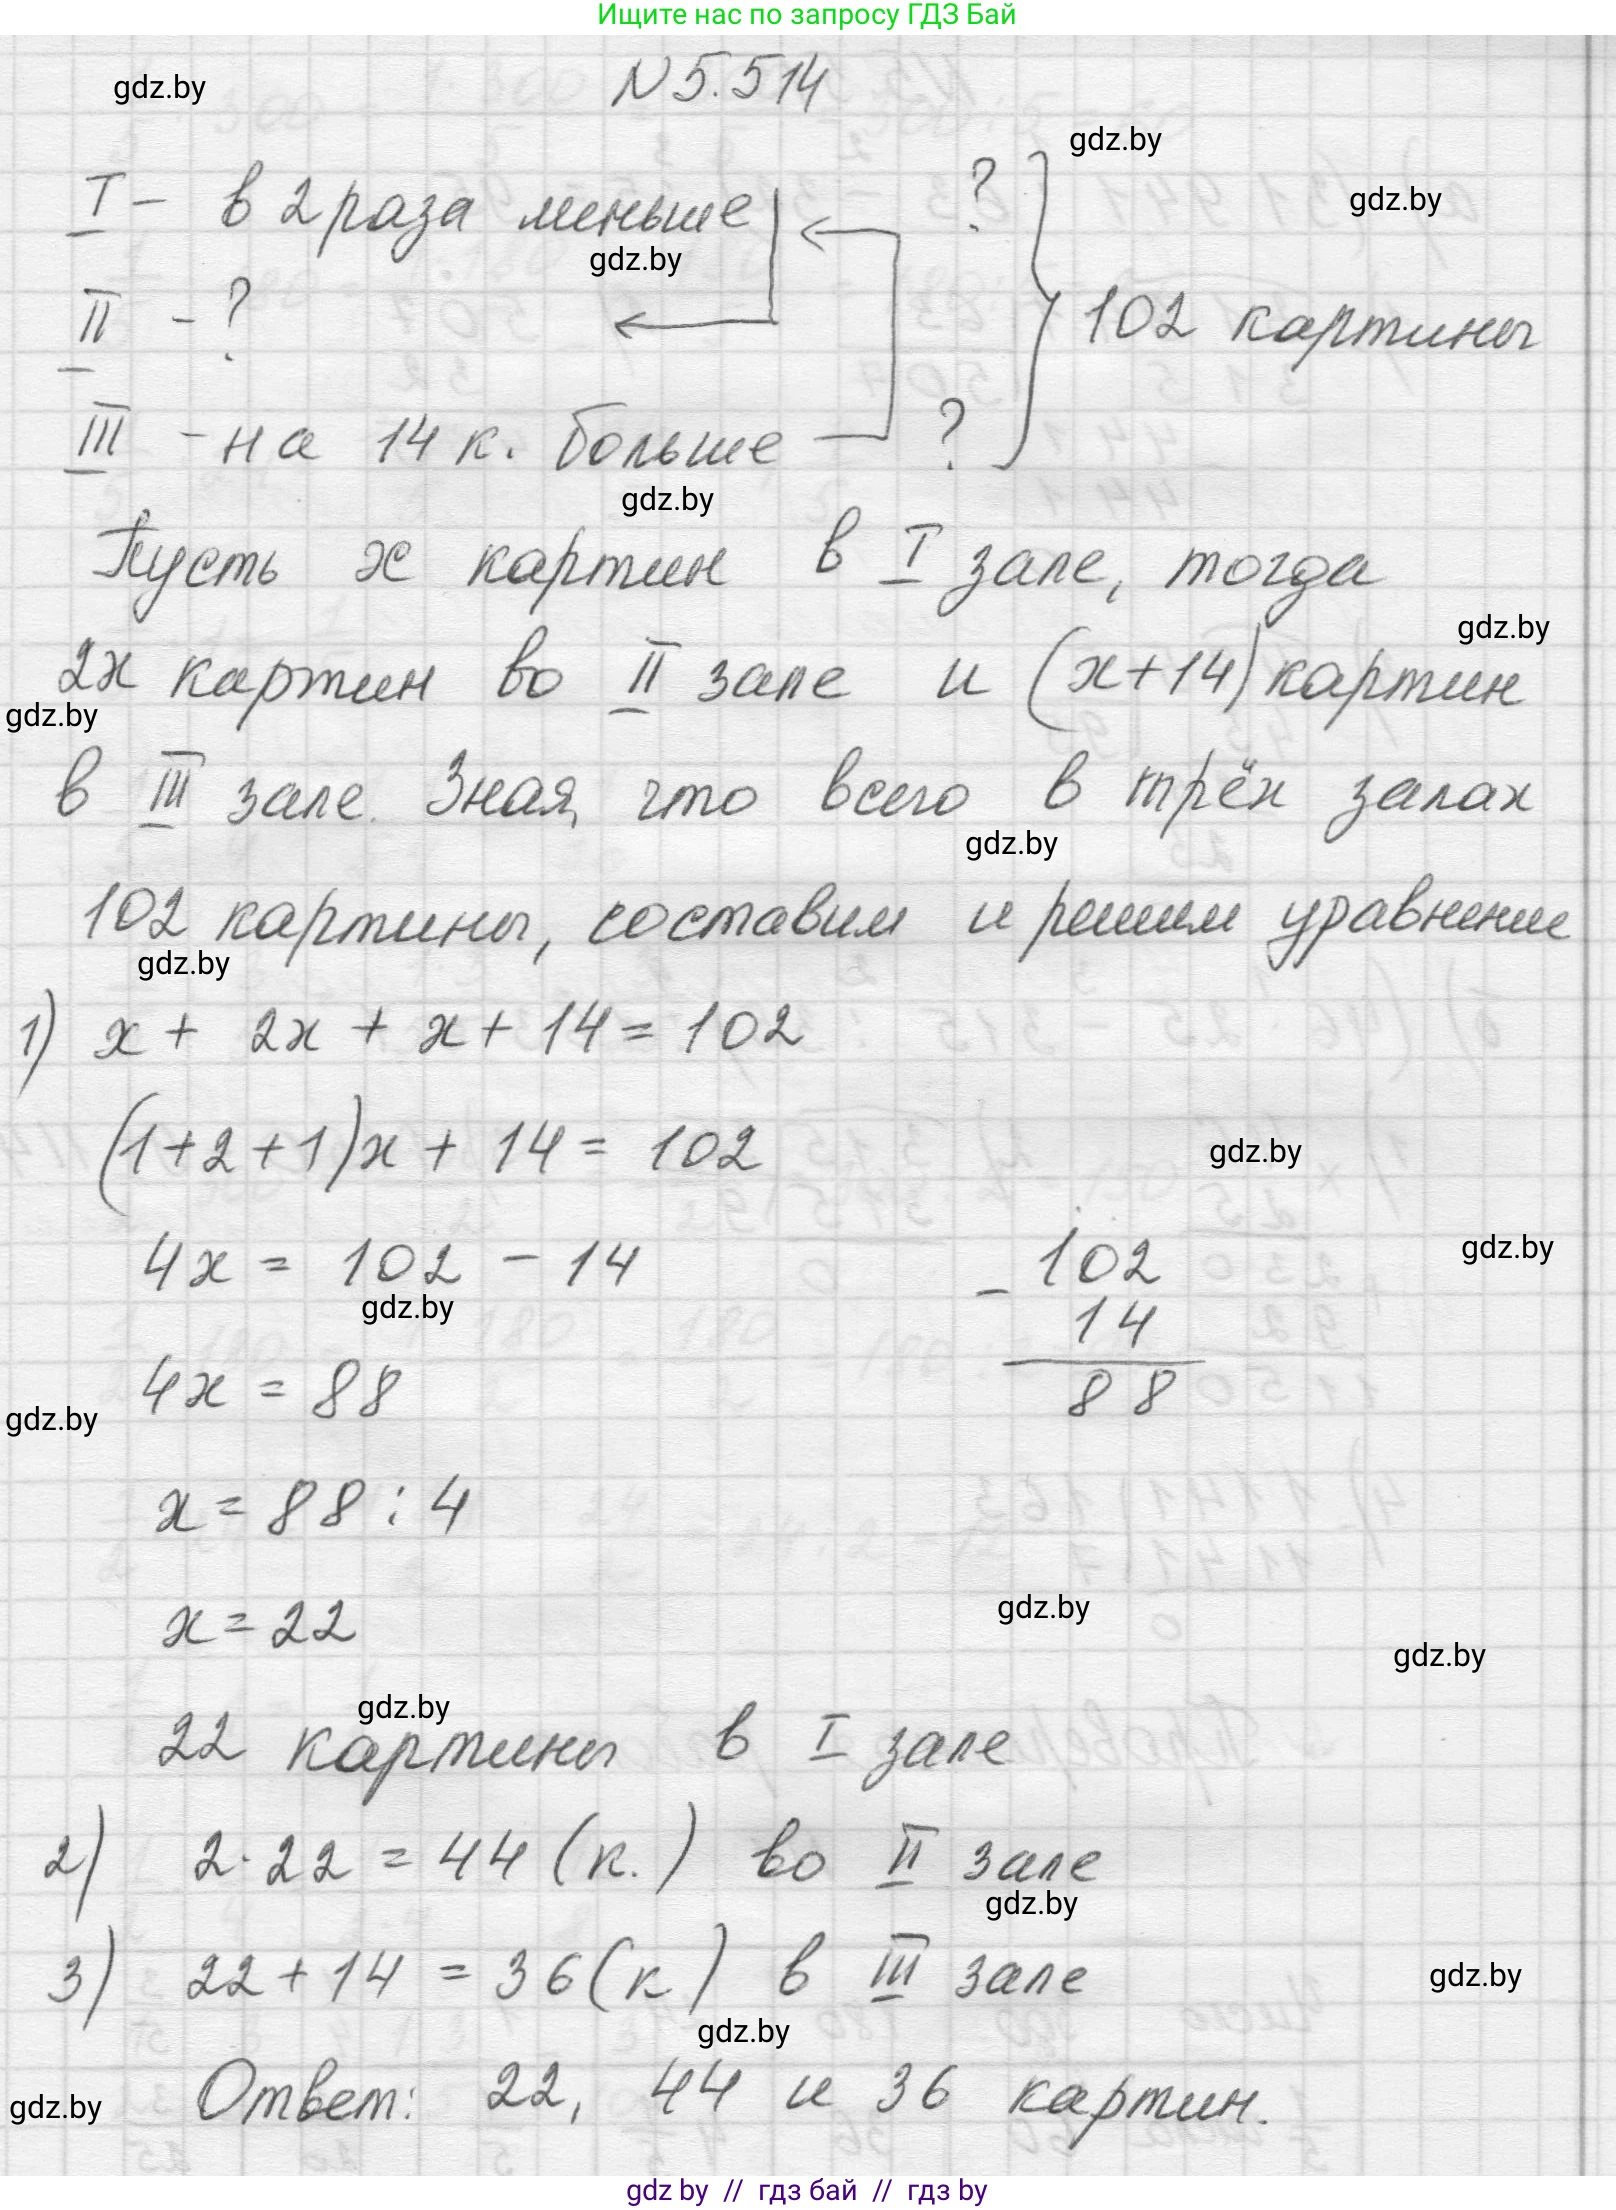 Ищите нас по запросу ГДЗ Бай
N 5.514
gdz.by
gdz.by
I - в 2 раза меньше ?
gdz.by
gdz.by
II - ?
102 картины
III - на 14 к. больше ?
gdz.by
Пусть x картин в I зале, тогда
gdz.by
2x картин во II зале и (x+14) картин
gdz.by
в III зале. Зная, что всего в трёх залах
gdz.by
102 картины, составим и решим уравнение
gdz.by
1) x + 2x + x + 14 = 102
(1+2+1)x + 14 = 102
gdz.by
4x = 102 - 14
gdz.by
gdz.by
- 102
14
88
4x = 88
gdz.by
x = 88 : 4
x = 22
gdz.by
gdz.by
gdz.by
22 картины в I зале
2) 2·22 = 44 (к.) во II зале
gdz.by
3) 22 + 14 = 36 (к) в III зале
gdz.by
gdz.by
Ответ: 22, 44 и 36 картин.
gdz.by
gdz by // гдз бай // гдз by